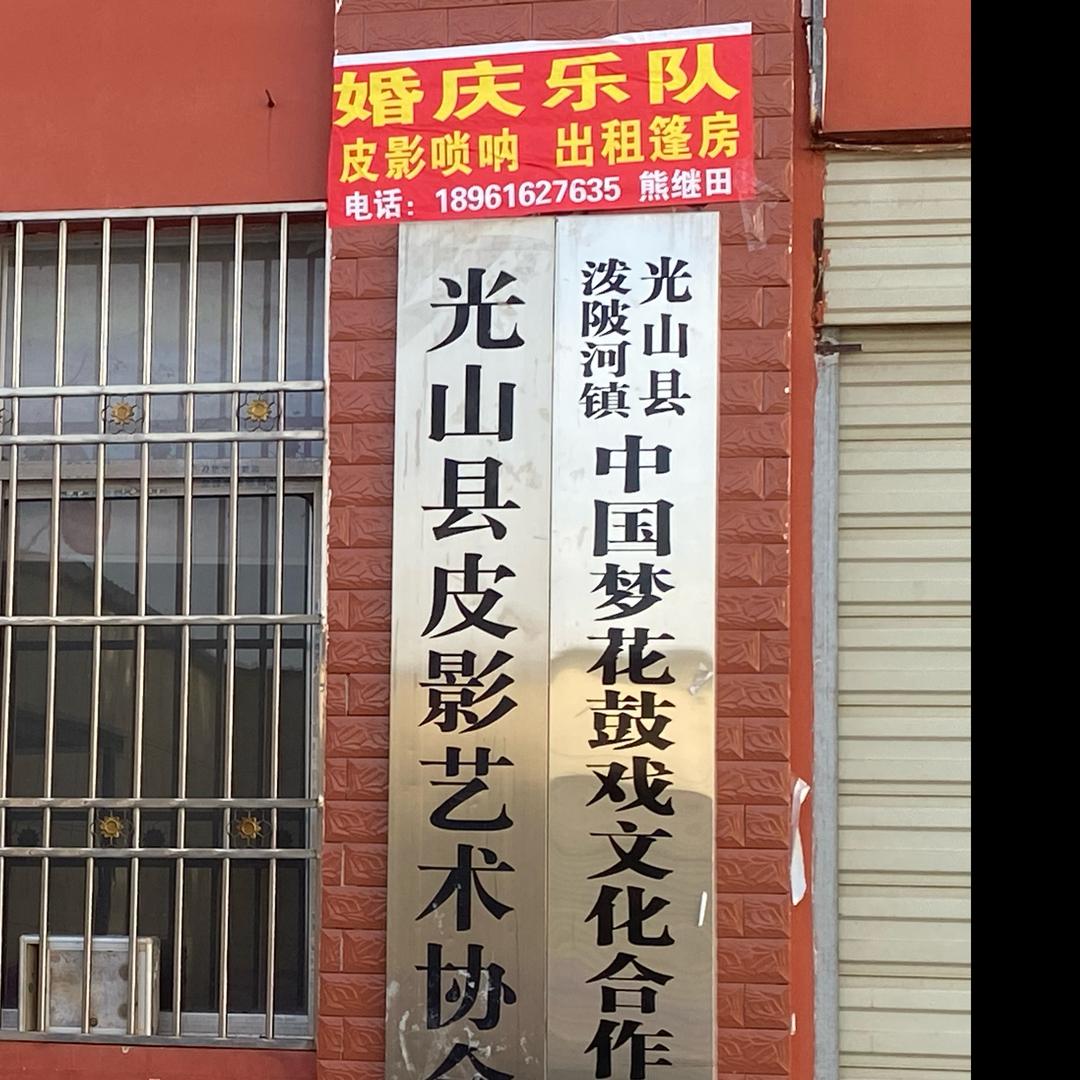 婚庆乐队
皮影唢呐 出租篷房
电话：18961627635 熊继田
光山县皮影艺术协会
光山县
泼陂河镇
中国梦花鼓戏文化合作